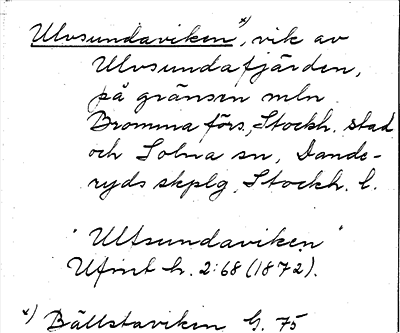 Ulvsundaviken x), vik av
Ulvsundafjärden,
på gränsen mln
Bromma förs, Stockh. stad
och Solna sn, Dande-
ryds skplg, Stockh. l.
"Ultsundaviken"
Ufint h. 2:68 (1872).
x) Bällstaviken G. 75